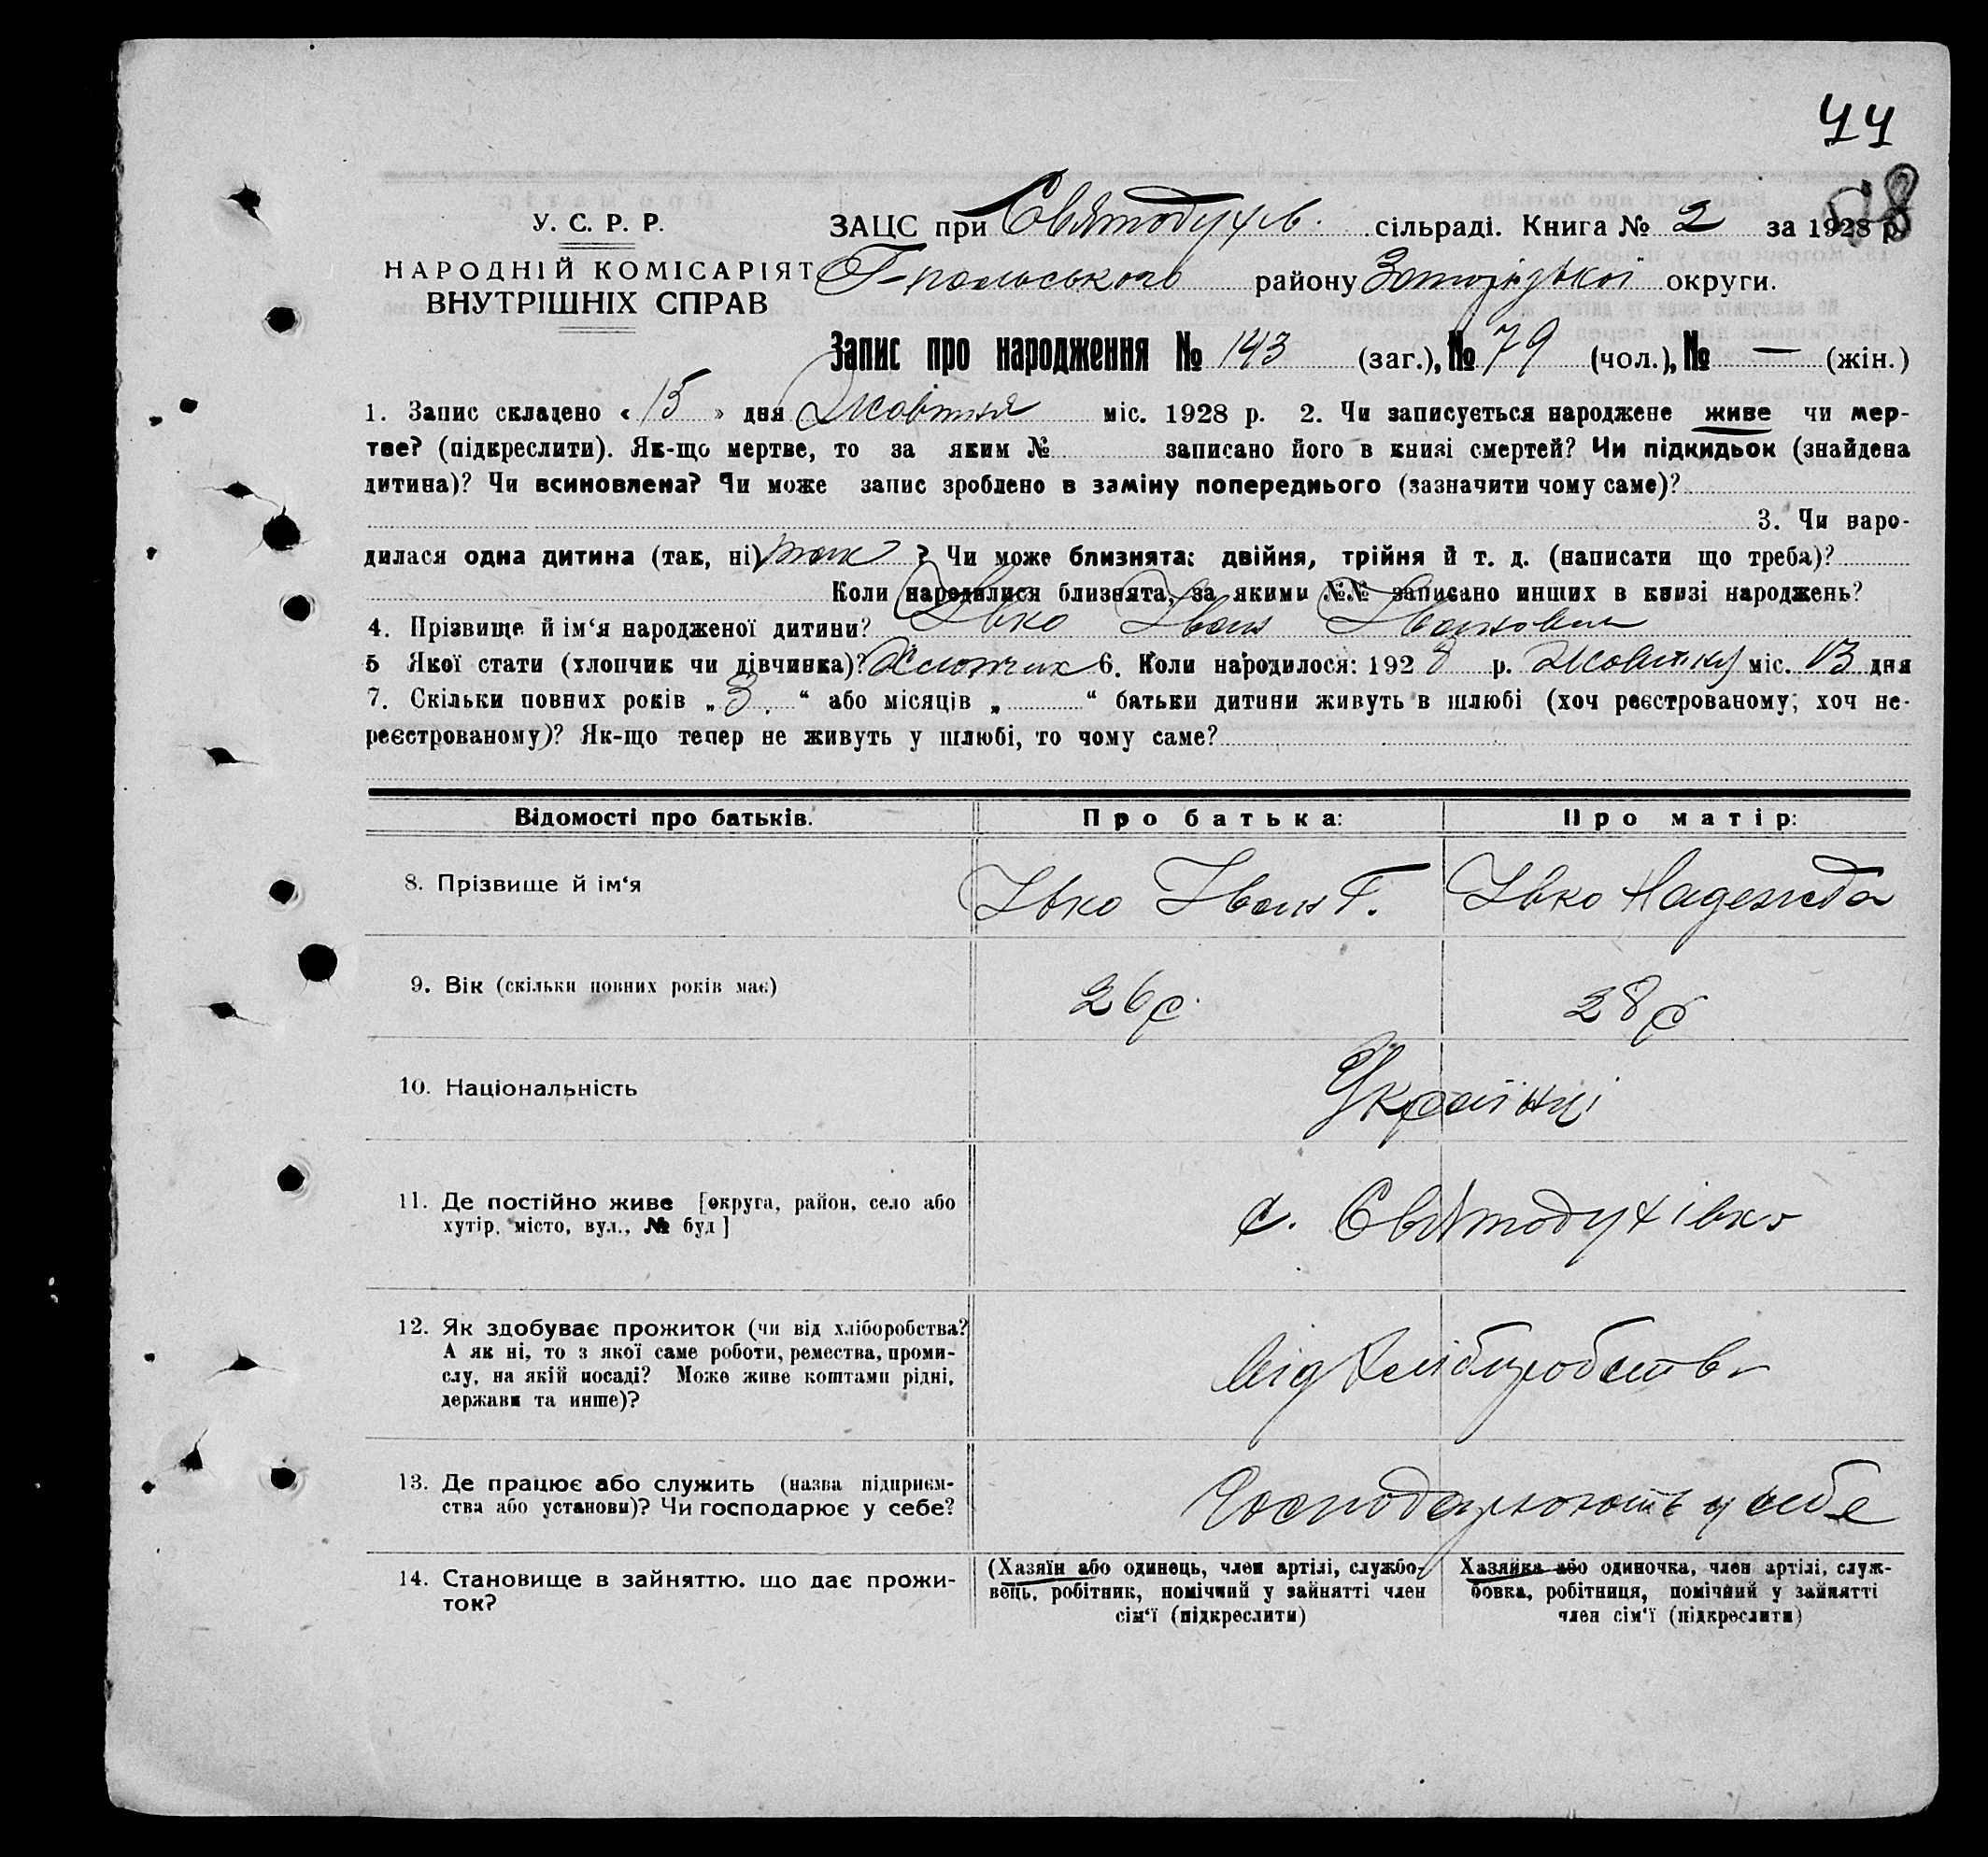 44
58
У. С. Р. Р.
НАРОДНІЙ КОМІСАРІЯТ
ВНУТРІШНІХ СПРАВ
ЗАЦС при Святодухів. сільраді. Книга № 2 за 1928 р.
Г-польського району Запорізької округи.
Запис про народження № 143 (заг.), № 79 (чол.), № — (жін.)
1. Запис складено « 15 » дня Жовтня міс. 1928 р. 2. Чи записується народжене живе чи мер-
тве? (підкреслити). Як-що мертве, то за яким № записано його в книзі смертей? Чи підкидьок (знайдена
дитина)? Чи всиновлена? Чи може запис зроблено в заміну попереднього (зазначити чому саме)?
3. Чи наро-
дилася одна дитина (так, ні) так ? Чи може близнята: двійня, трійня й т. д. (написати що треба)?
Коли народилися близнята, за якими №№ записано инших в книзі народжень?
4. Прізвище й ім‘я народженої дитини? Івко Іван Іванович
5 Якої стати (хлопчик чи дівчинка)? Хлопчик 6. Коли народилося: 1928 р. Жовтня міс. 13 дня
7. Скільки повних років „ 3 “ або місяців „ “ батьки дитини живуть в шлюбі (хоч реєстрованому, хоч не-
реєстрованому)? Як-що тепер не живуть у шлюбі, то чому саме?
Відомості про батьків. Про батька: Про матір:
8. Прізвище й ім‘я Івко Іван Г. Івко Надежда
9. Вік (скільки повних років має) 26 р. 28 р
10. Національність Українці
11. Де постійно живе [округа, район, село або
хутір, місто, вул., № буд ] с. Святодухівка
12. Як здобуває прожиток (чи від хліборобства?
А як ні, то з якої саме роботи, ремества, проми-
слу, на якій посаді? Може живе коштами рідні,
держави та инше)? від хліборобства
13. Де працює або служить (назва підприєм-
ства або установи)? Чи господарює у себе? Господарюють у себе
14. Становище в зайняттю, що дає прожи-
ток?
(Хазяїн або одинець, член артілі, службо-
вець, робітник, помічний у зайнятті член
сім‘ї (підкреслити)
Хазяйка або одиночка, член артілі, служ-
бовка, робітниця, помічний у зайнятті
член сім‘ї (підкреслити)